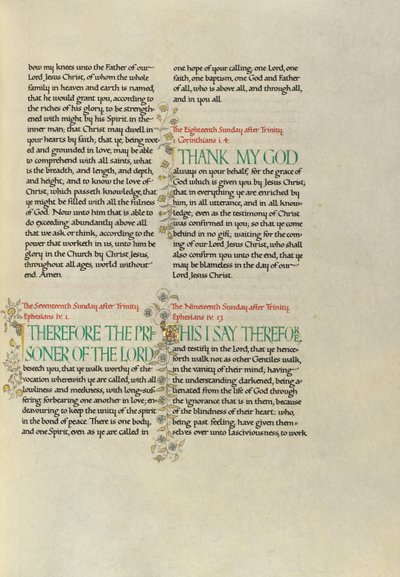 bow my knees unto the Father of our
Lord Jesus Christ, of whom the whole
family in heaven and earth is named,
that he would grant you, according to
the riches of his glory, to be strength-
ened with might by his Spirit in the
inner man; that Christ may dwell in
your hearts by faith; that ye, being root-
ed and grounded in love, may be able
to comprehend with all saints, what
is the breadth, and length, and depth,
and height; and to know the love of
Christ, which passeth knowledge, that
ye might be filled with all the fulness
of God. Now unto him that is able to
do exceeding abundantly above all
that we ask or think, according to the
power that worketh in us, unto him be
glory in the Church by Christ Jesus,
throughout all ages, world without
end. Amen.
The Seventeenth Sunday after Trinity.
Ephesians iv. 1.
I THEREFORE THE PRI-
SONER OF THE LORD
beseech you, that ye walk worthy of the
vocation wherewith ye are called, with all
lowliness and meekness, with long-suf-
fering, forbearing one another in love; en-
deavouring to keep the unity of the spirit
in the bond of peace. There is one body,
and one Spirit, even as ye are called in
one hope of your calling; one Lord, one
faith, one baptism, one God and Father
of all, who is above all, and through all,
and in you all.
The Eighteenth Sunday after Trinity.
1 Corinthians i. 4.
I THANK MY GOD
always on your behalf, for the grace of
God which is given you by Jesus Christ;
that in everything ye are enriched by
him, in all utterance, and in all know-
ledge; even as the testimony of Christ
was confirmed in you; so that ye come
behind in no gift; waiting for the com-
ing of our Lord Jesus Christ, who shall
also confirm you unto the end, that ye
may be blameless in the day of our
Lord Jesus Christ.
The Nineteenth Sunday after Trinity.
Ephesians iv. 17.
THIS I SAY THEREFORE,
and testify in the Lord, that ye hence-
forth walk not as other Gentiles walk,
in the vanity of their mind; having
the understanding darkened, being a-
lienated from the life of God through
the ignorance that is in them, because
of the blindness of their heart: who,
being past feeling, have given them-
selves over unto Lasciviousness, to work